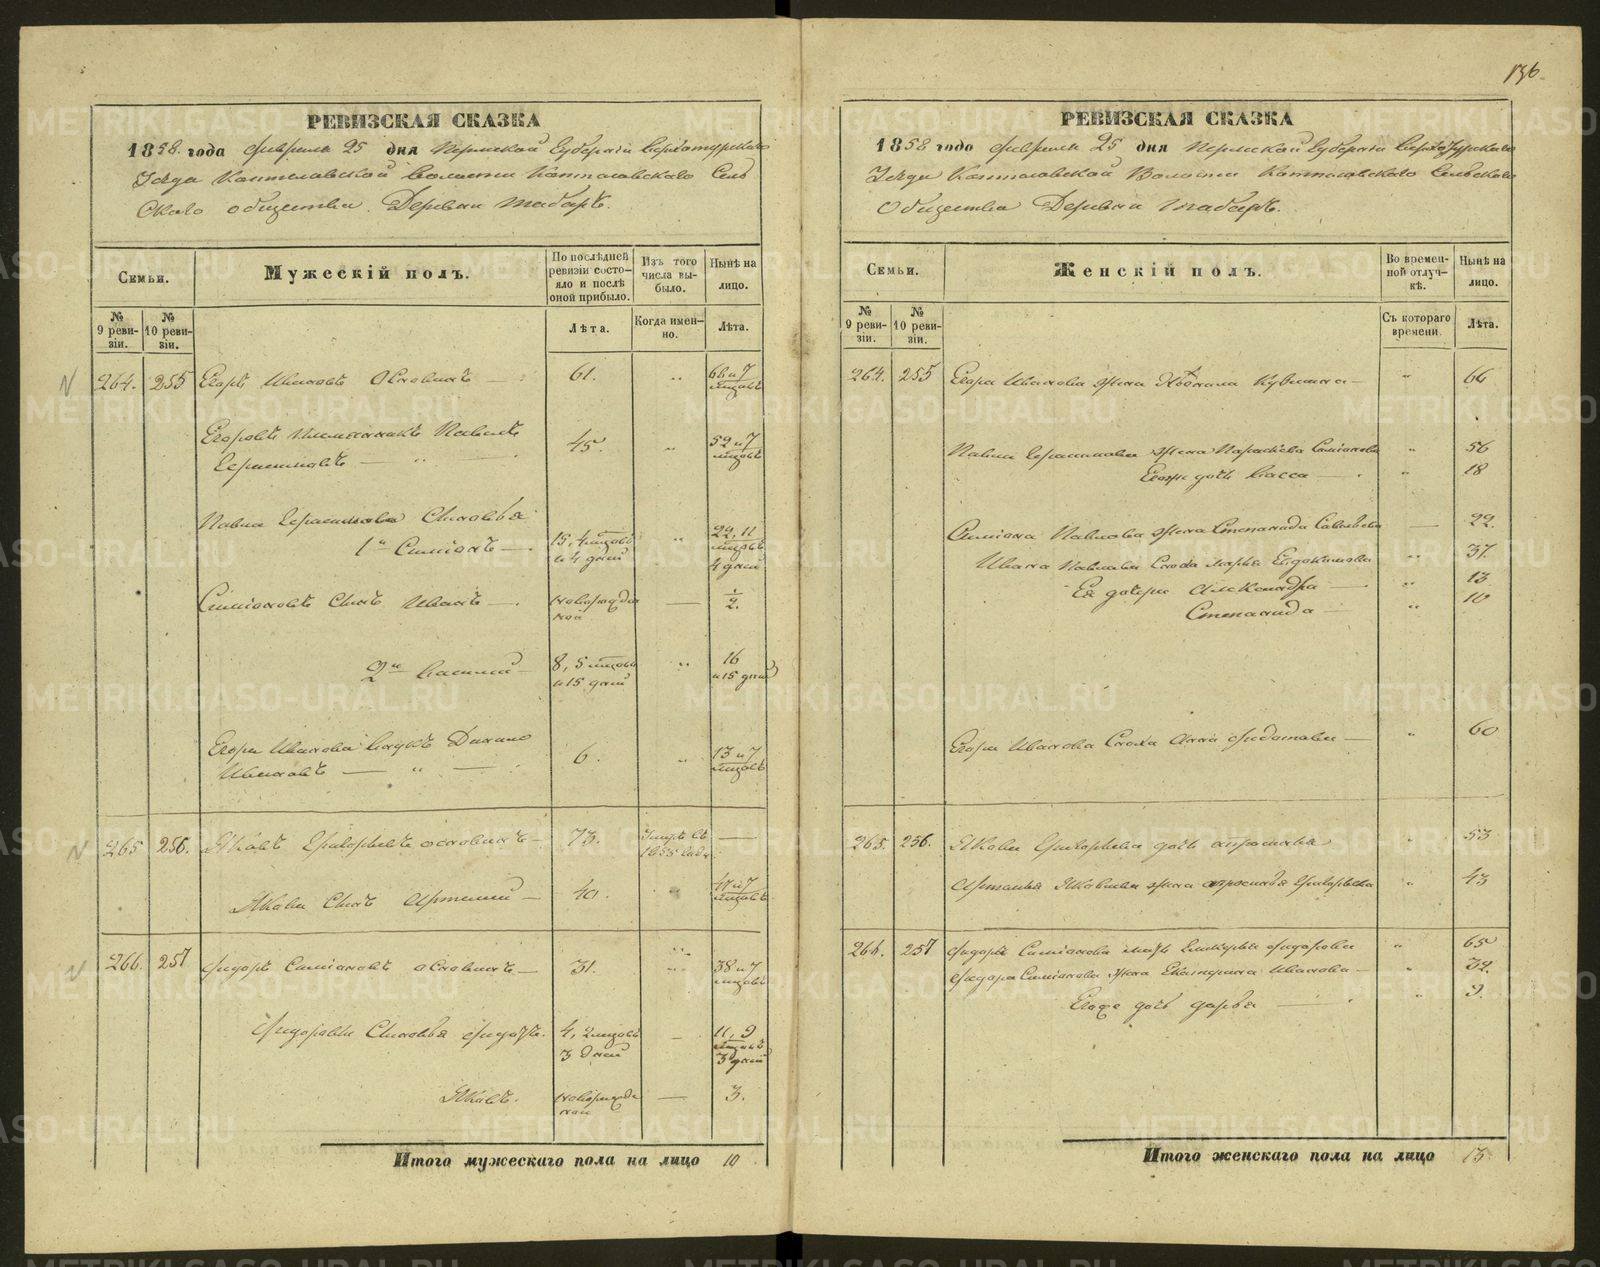 136.
РЕВИЗСКАЯ СКАЗКА
1858 года февраля 25 дня Пермской Губернiи Верхотурскаго
Уезда Коптеловской Волости Коптеловскаго Сель
Скаго общества Деревни Таборъ.
Семьи.
Мужескiй полъ.
По послѣдней ревизiи состо-
яло и послѣ
оной прибыло.
Изъ того
числа вы-
было.
Нынѣ на
лицо.
№
9 реви-
зiи.
№
10 реви-
зiи.
Лѣта.
Когда имен-
но.
Лѣта.
264. 255 Егоръ Ивановъ Основинъ 61. 68 и 7 мцовъ
Егоровъ племянникъ Павелъ
Герасимовъ 45. 52 и 7 мцовъ
Павла Герасимова Сыновья
1й Симiонъ 15, 4 мцовъ и 4 дней 22, 11 мцовъ 4 дней
Симiоновъ Сынъ Иванъ новорожденной 1/2.
2й Василий 8, 5 мцовъ и 15 дней 16 и 15 дней
Егора Иванова Внукъ
Ивановъ 6. 13 и 7 мцовъ
265 256. Яковъ Григорьевъ основинъ 73. умеръ въ 1855 году
Якова Сынъ Артемий 40. 47 и 7 мцовъ
266. 257 Федоръ Симiоновъ основинъ 31. 38 и 7 мцовъ
Федоровы Сыновья 4, 2 мцовъ 3 дней 11, 9 мцовъ 3 дней
Яковъ. новорожденной 3.
Итого мужескаго пола на лицо 10
РЕВИЗСКАЯ СКАЗКА
1858 годо февраля 25 дня Пермской Губернiи Верхотурскаго
Уезда Коптеловской Волости Коптеловскаго Сельскаго
Общества Деревни Таборъ.
Семьи.
Женскiй полъ.
Во времен-
ной отлуч-
кѣ.
Нынѣ на
лицо.
№
9 реви-
зiи.
№
10 реви-
зiи.
Съ котораго
времени.
Лѣта.
264. 255 Егора Иванова жена 66
Павла Герасимова жена Параскева Симiонова 56
Егоже дочь Васса 18
Симiона Павлова жена Степанида Савельева 22.
Ивана Павлова Сноха Марья Евдокимова 37.
Ея дочери Александра 13
Степанида 10
Егора Иванова Сноха Анна Федотова 60
265. 256. Якова Григорьева дочь 53
Артемья Яковлева жена Григорьева 43
266. 257 Федоръ Симiонова мать Федорова 65
Федора Симiонова жена Екатерина Иванова 39.
Егоже дочь Дарья 9.
Итого женскаго пола на лицо 13
METRIKI.GASO-URAL.RU